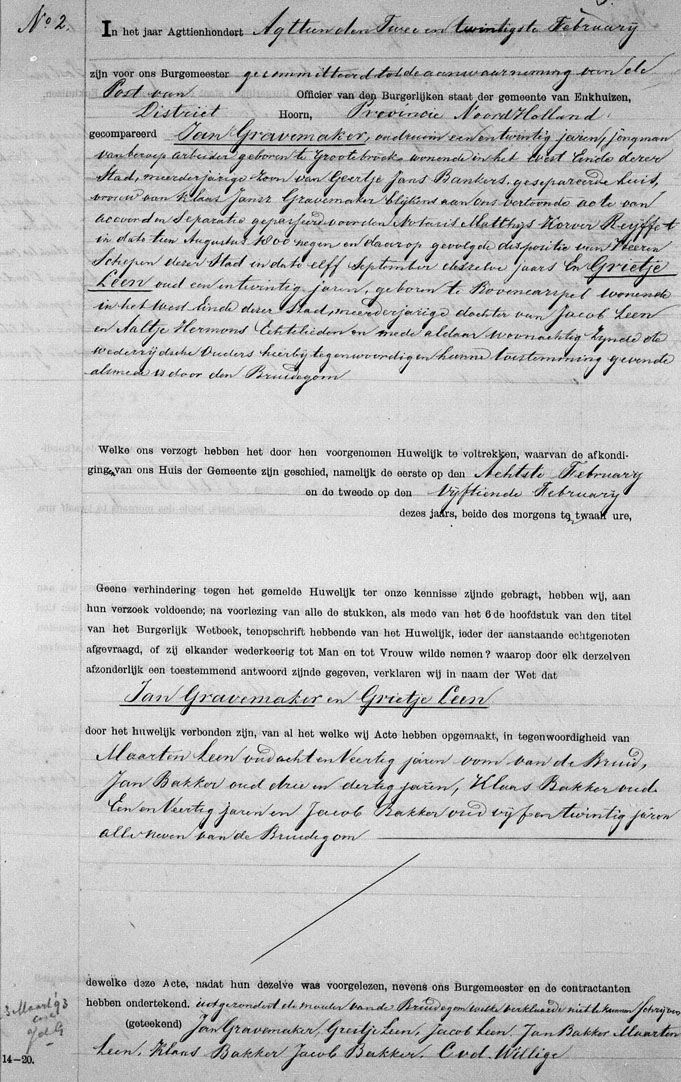 No. 2.
In het jaar Agttienhondert Agttien den Twee en twintigste February
zijn voor ons Burgemeester gecommitteerd tot de aanwaarneming van de
Post van Officier van den Burgerlijken staat der gemeente van Enkhuizen,
District Hoorn, Provincie Noord Holland
gecompareerd Jan Gravemaker, oud ruim een en twintig jaren, jongman
van beroep arbeider geboren te Grootebroek wonende in het West Einde dezer
Stad, meerderjarige zoon van Geertje Jans Bankers, gesepareerde huis,
vrouw van Klaas Jansz Gravemaker blijkens aan ons vertoonde acte van
accoord en Separatie gepasseerd voor den Notaris Matthijs Horver
in dato tien Augustus 1800 negen en daarop gevolgde dispositie van Heeren
Schepen dezer Stad in dato elff September deszelve jaars En Grietje
Leen oud een en twintig jaren, geboren te Bovencarspel wonende
in het West Einde dezer Stad, meerderjarige dochter van Jacob Leen
en Aaltje Hermans Echtelieden en mede aldaar woonachtig Zynde de
wederzydsche Ouders hierbij tegenwoordig en hunne toestemming gevende
alsmede is door den Bruidegom
Welke ons verzogt hebben het door hen voorgenomen Huwelijk te voltrekken, waarvan de afkondi-
ging van ons Huis der Gemeente zijn geschied, namelijk de eerste op den Achtste February
en de tweede op den Vijftiende February
dezes jaars, beide des morgens te twaalf ure,
Geene verhindering tegen het gemelde Huwelijk ter onze kennisse zijnde gebragt, hebben wij, aan
hun verzoek voldoende; na voorlezing van alle de stukken, als mede van het 6 de hoofdstuk van den titel
van het Burgerlijk Wetboek, tenopschrift hebbende van het Huwelijk, ieder der aanstaande echtgenoten
afgevraagd, of zij elkander wederkeerig tot Man en tot Vrouw wilde nemen? waarop door elk derzelven
afzonderlijk een toestemmend antwoord zijnde gegeven, verklaren wij in naam der Wet dat
Jan Gravemaker en Grietje Leen
door het huwelijk verbonden zijn, van al het welke wij Acte hebben opgemaakt, in tegenwoordigheid van
Maarten Leen oud acht en Veertig jaren oom van de Bruid,
Jan Bakker oud drie en dertig jaren, Klaas Bakker oud
Een en Veertig jaren en Jacob Bakker oud vijf en twintig jaren
alle neven van de Bruidegom
dewelke deze Acte, nadat hun dezelve was voorgelezen, nevens ons Burgemeester en de contractanten
hebben ondertekend. uitgezondert de moeder van de Bruidegom welke verklaarde niet te kunnen Schrijven
(geteekend) Jan Gravemaker, Grietje Leen, Jacob Leen, Jan Bakker Maarten
Leen, Klaas Bakker Jacob Bakker, C vd Willige
3 Maart 93
14-20.